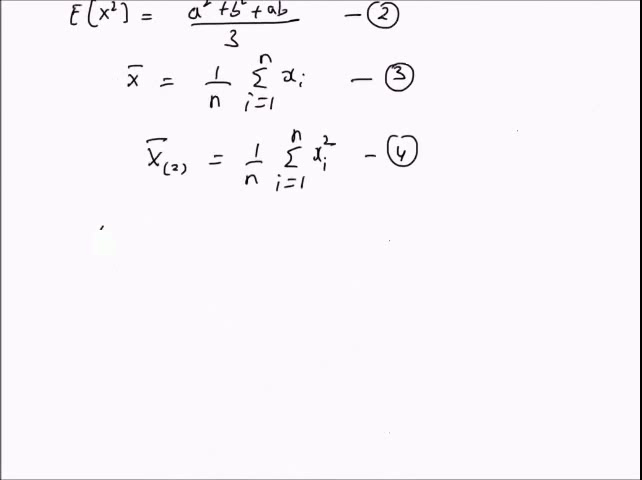 E[X²] = (a² + b² + ab)/3 — ②
x̄ = 1/n ∑_{i=1}^{n} xᵢ — ③
X̄₍₂₎ = 1/n ∑_{i=1}^{n} xᵢ² — ④